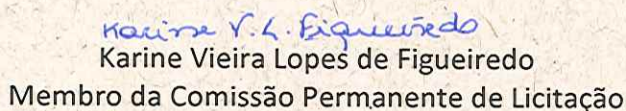 Karine V. L. Figueiredo
Karine Vieira Lopes de Figueiredo
Membro da Comissão Permanente de Licitação